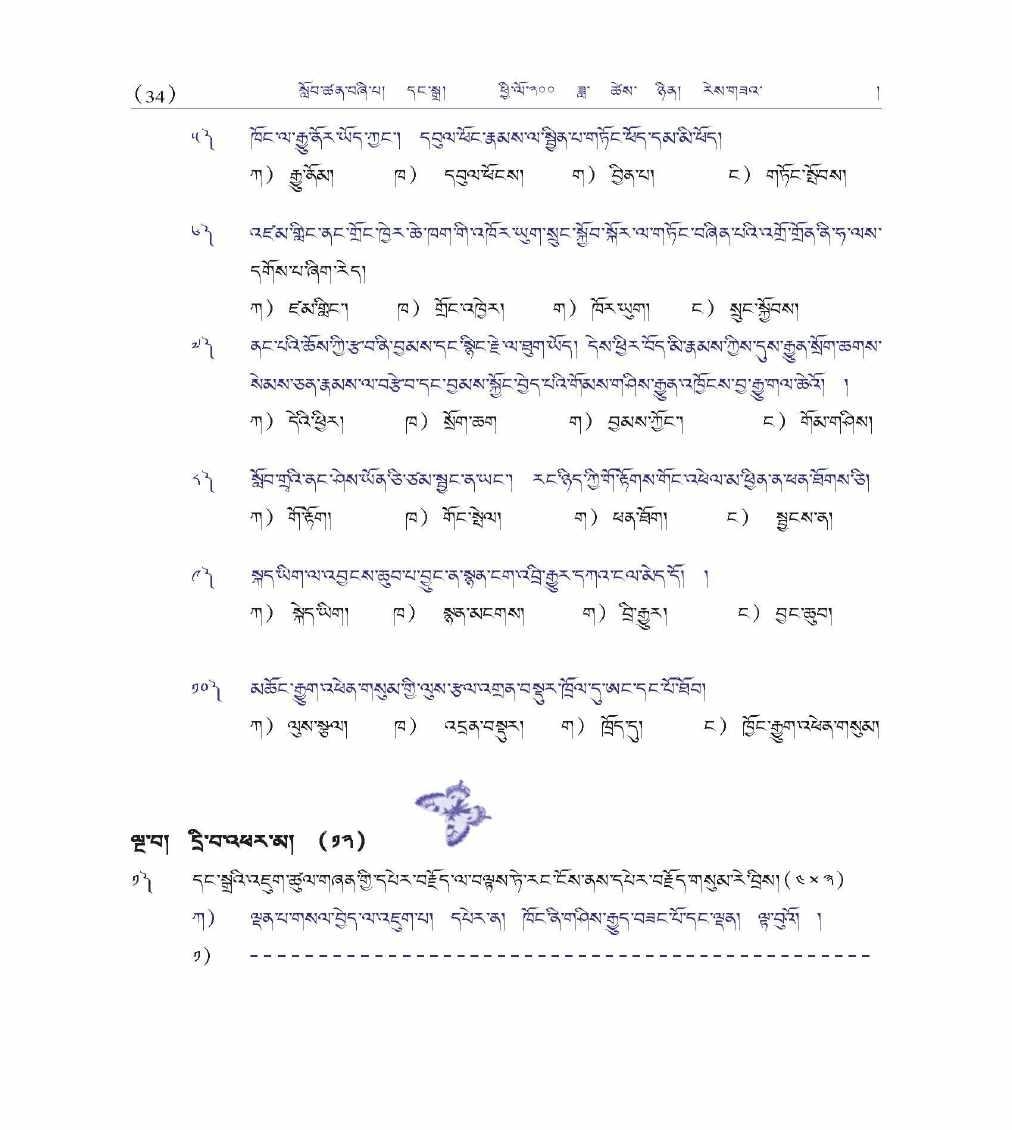 (34) སློབ་ཚན་བཞི་པ། དང་སྒྲ། ཕྱི་ལོ་༢༠༠ ཟླ་ ཚེས་ ཉིན། རེས་གཟའ་ །
༥༽ ཁོང་ལ་རྒྱུ་ནོར་ཡོད་ཀྱང་། དབུལ་ཕོང་རྣམས་ལ་སྦྱིན་པ་གཏོང་ཕོད་དམ་མི་ཕོད།
ཀ) རྒྱུ་ནོམ། ཁ) དབུལ་ཕོངས། ག) བྱིན་པ། ང) གཏོང་སྤོབས།
༦༽ འཛམ་གླིང་ནང་གྲོང་ཁྱེར་ཆེ་ཁག་གི་འཁོར་ཡུག་སྲུང་སྐྱོབ་སྐོར་ལ་གཏོང་བཞིན་པའི་འགྲོ་གྲོན་ནི་ཧ་ལས་
དགོས་པ་ཞིག་རེད།
ཀ) ཛམ་གླིང་། ཁ) གྲོང་འཁྱེར། ག) ཁོར་ཡུག། ང) སྲུང་སྐྱོབས།
༧༽ ནང་པའི་ཆོས་ཀྱི་རྩ་བ་ནི་བྱམས་དང་སྙིང་རྗེ་ལ་ཐུག་ཡོད། དེས་ཕྱིར་བོད་མི་རྣམས་ཀྱིས་དུས་རྒྱུན་སྲོག་ཆགས་
སེམས་ཅན་རྣམས་ལ་བརྩེ་བ་དང་བྱམས་སྐྱོང་བྱེད་པའི་གོམས་གཤིས་རྒྱུན་འཁྱོངས་བྱ་རྒྱུ་གལ་ཆེའོ། །
ཀ) དེའི་ཕྱིར། ཁ) སྲོག་ཆག ག) བྱམས་ཀྱོང་། ང) གོམ་གཤིས།
༨༽ སློབ་གྲྭའི་ནང་ཤེས་ཡོན་ཅི་ཙམ་སྦྱང་ན་ཡང་། རང་ཉིད་ཀྱི་གོ་རྟོགས་གོང་འཕེལ་མ་ཕྱིན་ན་ཕན་ཐོགས་ཅི།
ཀ) གོ་རྟོག། ཁ) གོང་སྤེལ། ག) ཕན་ཐོག། ང) སྦྱངས་ན།
༩༽ སྐད་ཡིག་ལ་འབྱངས་ཆུབ་པ་བྱུང་ན་སྙན་ངག་འབྲི་རྒྱུར་དཀའ་ངལ་མེད་དོ། །
ཀ) སྐེད་ཡིག། ཁ) སྙན་མངགས། ག) བྲི་རྒྱུར། ང) བྱང་ཆུབ།
༡༠༽ མཆོང་རྒྱུག་འཕེན་གསུམ་གྱི་ལུས་རྩལ་འགྲན་བསྡུར་ཁྲོལ་དུ་ཨང་དང་པོ་ཐོབ།
ཀ) ལུས་སྩལ། ཁ) འདྲན་བསྡུར། ག) ཁྲོད་དུ། ང) ཁྱོང་རྒྱུག་འཕེན་གསུམ།
ལྔ་བ། དྲི་བ་འཕར་མ། (༡༢)
༡༽ དང་སྒྲའི་འཇུག་ཚུལ་གཞན་གྱི་དཔེར་བརྗོད་ལ་བལྟས་ཏེ་རང་ངོས་ནས་དཔེར་བརྗོད་གསུམ་རེ་བྲིས། (༤ × ༣)
ཀ) ལྡན་པ་གསལ་བྱེད་ལ་འཇུག་པ། དཔེར་ན། ཁོང་ནི་གཤིས་རྒྱུད་བཟང་པོ་དང་ལྡན། ལྟ་བུའོ། །
༡) ----------------------------------------------